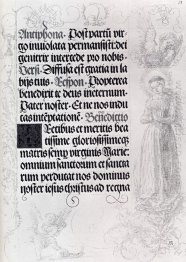 Antiphona · Post partū vir⸗
go inuiolata permansisti: dei
genitrix intercede pro nobis·
Versi· Diffusa est gratia in la⸗
bijs tuis· Respon· Propterea
benedixit te deus ineternum·
Pater noster· Et ne nos indu
cas intēptationē· Benedictio
Precibus et meritis bea
tissime gloriosissimeq;
matris semp virginis Marie:
omnium sanctorum et sancta
rum perducat nos dominus
noster iesus christus ad regna